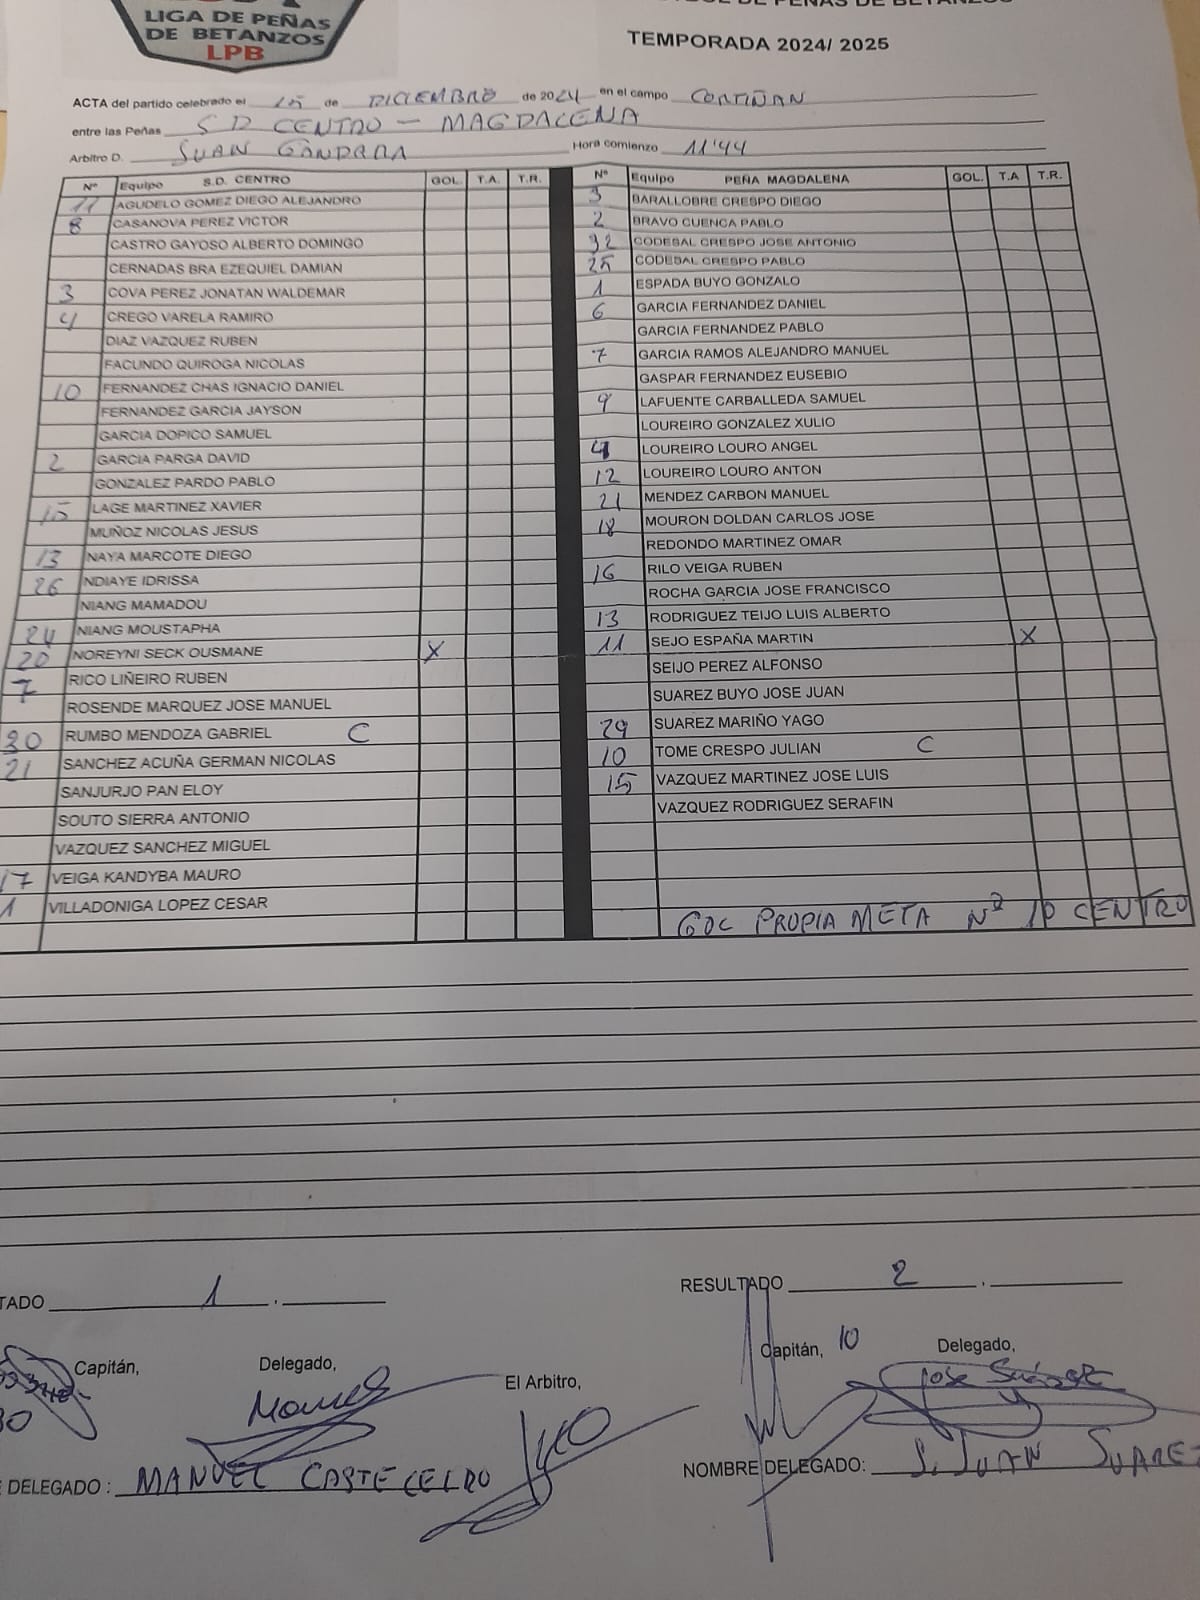 LIGA DE PEÑAS
DE BETANZOS
LPB
DE PEÑAS DE BETANZOS
TEMPORADA 2024/ 2025
ACTA del partido celebrado el 15 de DICIEMBRE de 2024 en el campo CORTIÑAN
entre las Peñas S D CENTRO - MAGDALENA
Arbitro D. JUAN GANDARA Hora comienzo 11'44
Nº Equipo S.D. CENTRO GOL. T.A. T.R.
11 AGUDELO GOMEZ DIEGO ALEJANDRO
8 CASANOVA PEREZ VICTOR
CASTRO GAYOSO ALBERTO DOMINGO
CERNADAS BRA EZEQUIEL DAMIAN
3 COVA PEREZ JONATAN WALDEMAR
4 CREGO VARELA RAMIRO
DIAZ VAZQUEZ RUBEN
FACUNDO QUIROGA NICOLAS
10 FERNANDEZ CHAS IGNACIO DANIEL
FERNANDEZ GARCIA JAYSON
GARCIA DOPICO SAMUEL
2 GARCIA PARGA DAVID
GONZALEZ PARDO PABLO
15 LAGE MARTINEZ XAVIER
MUÑOZ NICOLAS JESUS
13 NAYA MARCOTE DIEGO
26 NDIAYE IDRISSA
NIANG MAMADOU
24 NIANG MOUSTAPHA
20 NOREYNI SECK OUSMANE X
7 RICO LIÑEIRO RUBEN
ROSENDE MARQUEZ JOSE MANUEL
30 RUMBO MENDOZA GABRIEL C
21 SANCHEZ ACUÑA GERMAN NICOLAS
SANJURJO PAN ELOY
SOUTO SIERRA ANTONIO
VAZQUEZ SANCHEZ MIGUEL
17 VEIGA KANDYBA MAURO
1 VILLADONIGA LOPEZ CESAR
Nº Equipo PEÑA MAGDALENA GOL. T.A T.R.
3 BARALLOBRE CRESPO DIEGO
2 BRAVO CUENCA PABLO
32 CODESAL CRESPO JOSE ANTONIO
25 CODESAL CRESPO PABLO
1 ESPADA BUYO GONZALO
6 GARCIA FERNANDEZ DANIEL
GARCIA FERNANDEZ PABLO
7 GARCIA RAMOS ALEJANDRO MANUEL
GASPAR FERNANDEZ EUSEBIO
9 LAFUENTE CARBALLEDA SAMUEL
LOUREIRO GONZALEZ XULIO
4 LOUREIRO LOURO ANGEL
12 LOUREIRO LOURO ANTON
21 MENDEZ CARBON MANUEL
18 MOURON DOLDAN CARLOS JOSE
REDONDO MARTINEZ OMAR
16 RILO VEIGA RUBEN
ROCHA GARCIA JOSE FRANCISCO
13 RODRIGUEZ TEIJO LUIS ALBERTO
11 SEJO ESPAÑA MARTIN X
SEIJO PEREZ ALFONSO
SUAREZ BUYO JOSE JUAN
29 SUAREZ MARIÑO YAGO
10 TOME CRESPO JULIAN C
15 VAZQUEZ MARTINEZ JOSE LUIS
VAZQUEZ RODRIGUEZ SERAFIN
GOL PROPIA META Nº 10 CENTRO
TADO 1 . RESULTADO 2 .
Capitán, Delegado, El Arbitro, Capitán, 10 Delegado,
30 Manuel Jose Suárez
DELEGADO : MANUEL CASTELEIRO NOMBRE DELEGADO: J. JUAN SUAREZ